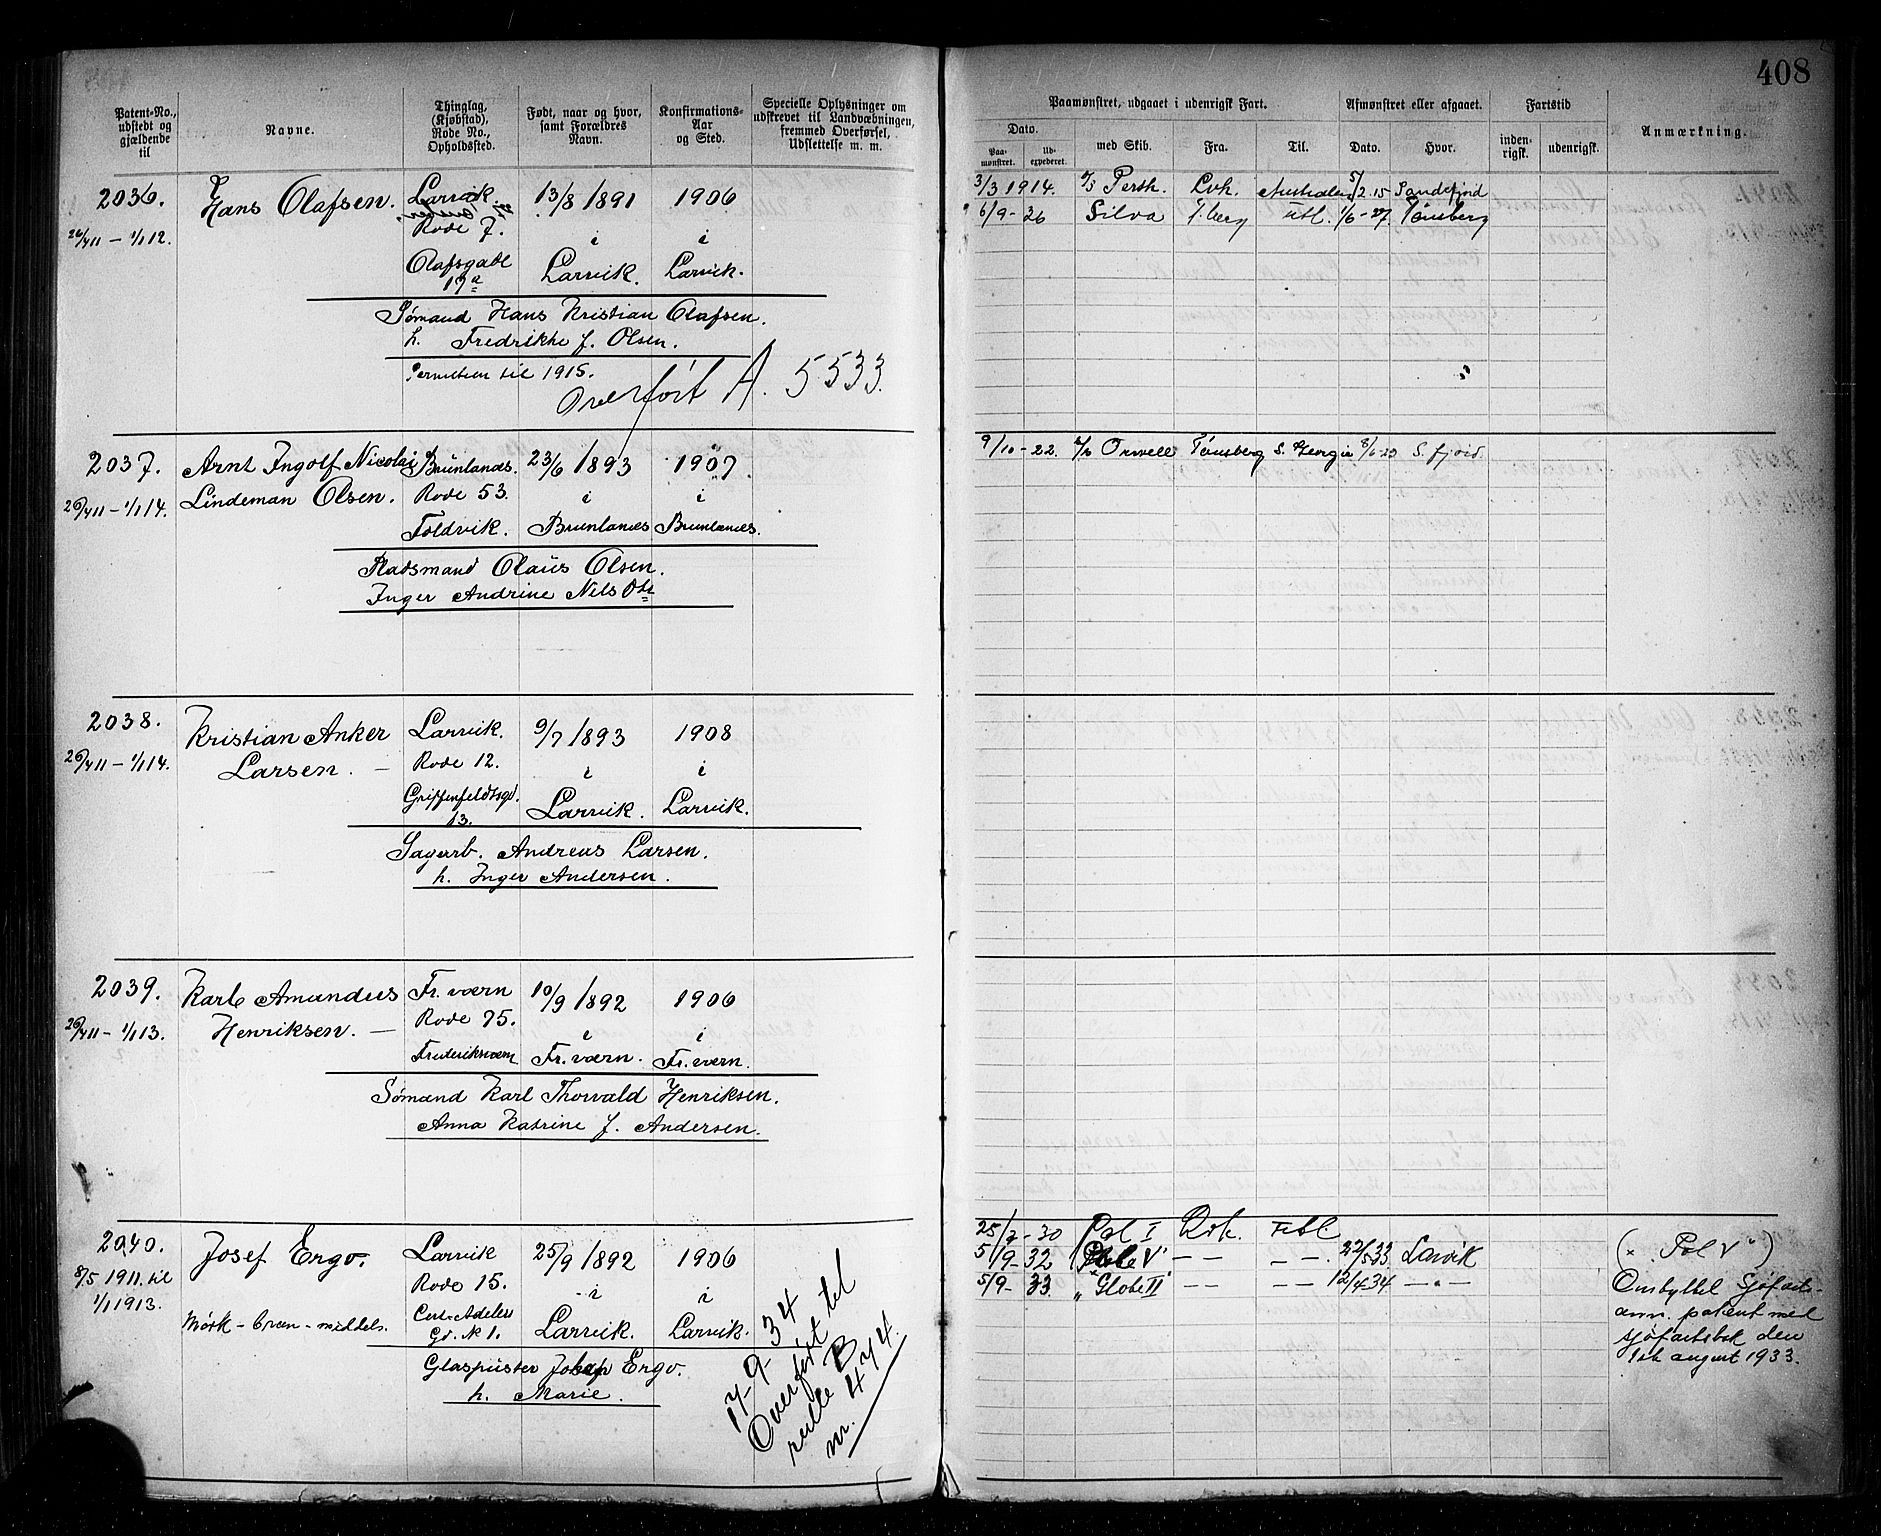 408
Patent-No., udstedt og gjældende til
Navne.
Thinglag, (Kjøbstad), Rode No., Opholdssted.
Født, naar og hvor, samt Forældres Navn.
Konfirmations-Aar og Sted.
Specielle Oplysninger om udskrevet til Landværbningen, fremmed Overførsel, Udslettelse m. m.
Paamønstret, udgaaet i udenrigsk Fart.
Afmønstret eller afgaaet.
Fartstid
Anmærkning.
Dato.
Paa-mønstret.
Ud-expederet.
med Skib.
Fra.
Til.
Dato.
Hvor.
inden-rigsk.
udenrigsk.
2036. Hans Olafsen. Larvik 13/8 1891 1906
Rode 7.
26/4 11 – 1/1 12. i i
Olafsgade Larvik. Larvik.
17a
Sømand Hans Kristian Olafsen.
h. Fredrikke f. Olsen.
til 1915.
Overført A. 5533.
3/3 1914. Perth. Lvk. Australien 5/2 15 Sandefjord
6/9 - 26 Silva T.berg Utl. 1/6 - 27. Tønsberg
2037. Arnt Ingolf Nicolai Brunlanæs. 23/6 1893 1907.
26/4 11 – 1/1 14. Lindeman Olsen. Rode 53. i i
Foldvik. Brunlanæs Brunlanæs.
Pladsmand Olaus Olsen.
Inger Andrine Nils Dtr
9/10 - 22. Orwell Tønsberg S. Georgia 8/6 23 S. fjord.
2038. Kristian Anker Larvik. 9/7 1893 1908
26/4 11 – 1/1 14. Larsen. – Rode 12. i i
Griffenfeldtsgd. Larvik. Larvik.
13.
Sagarb. Andreas Larsen.
h. Inger Andersen.
2039. Karl Amandus Fr. værn 10/9 1892 1906
26/4 11 – 1/1 13. Henriksen. – Rode 75. i i
Frederiksværn Fr. værn. Fr. værn.
Sømand Karl Thorvald Henriksen.
Anna Katrine f. Andersen.
2040. Josef Ergo. Larvik 25/9 1892 1906
8/5 1911. til Rode 15. i i
1/1 1913.
Mørk – brun – middels. Cort Adelers Larvik. Larvik.
Gd. N 1.
Glaspuster Ergo.
h. Marie.
17-9-34
Overført til
rulle B
nr. 474.
25/7 - 30 Pol I Lvk. Utl.
5/9 - 32 V" – – – – 22/5 33 Larvik
5/9 - 33 „Globe II" – – – – 12/4 34 – " –
(" Pol V")
Ombyttet Sjøfarts-
ann. patent med
sjøfartsbok den
1ste august 1933.